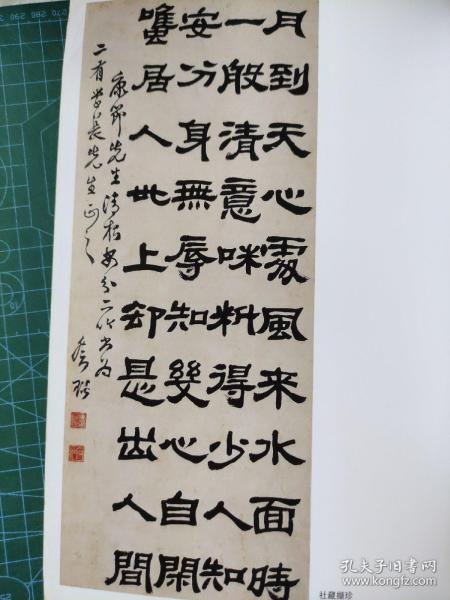 月到天心處風来水面時
一般清意味料得少人知
安分身無辱知幾心自閑
雖居人世上却是出人間
康節先生清夜安分二吟書為
二有學長先生正之
社藏擷珍
孔夫子旧书网